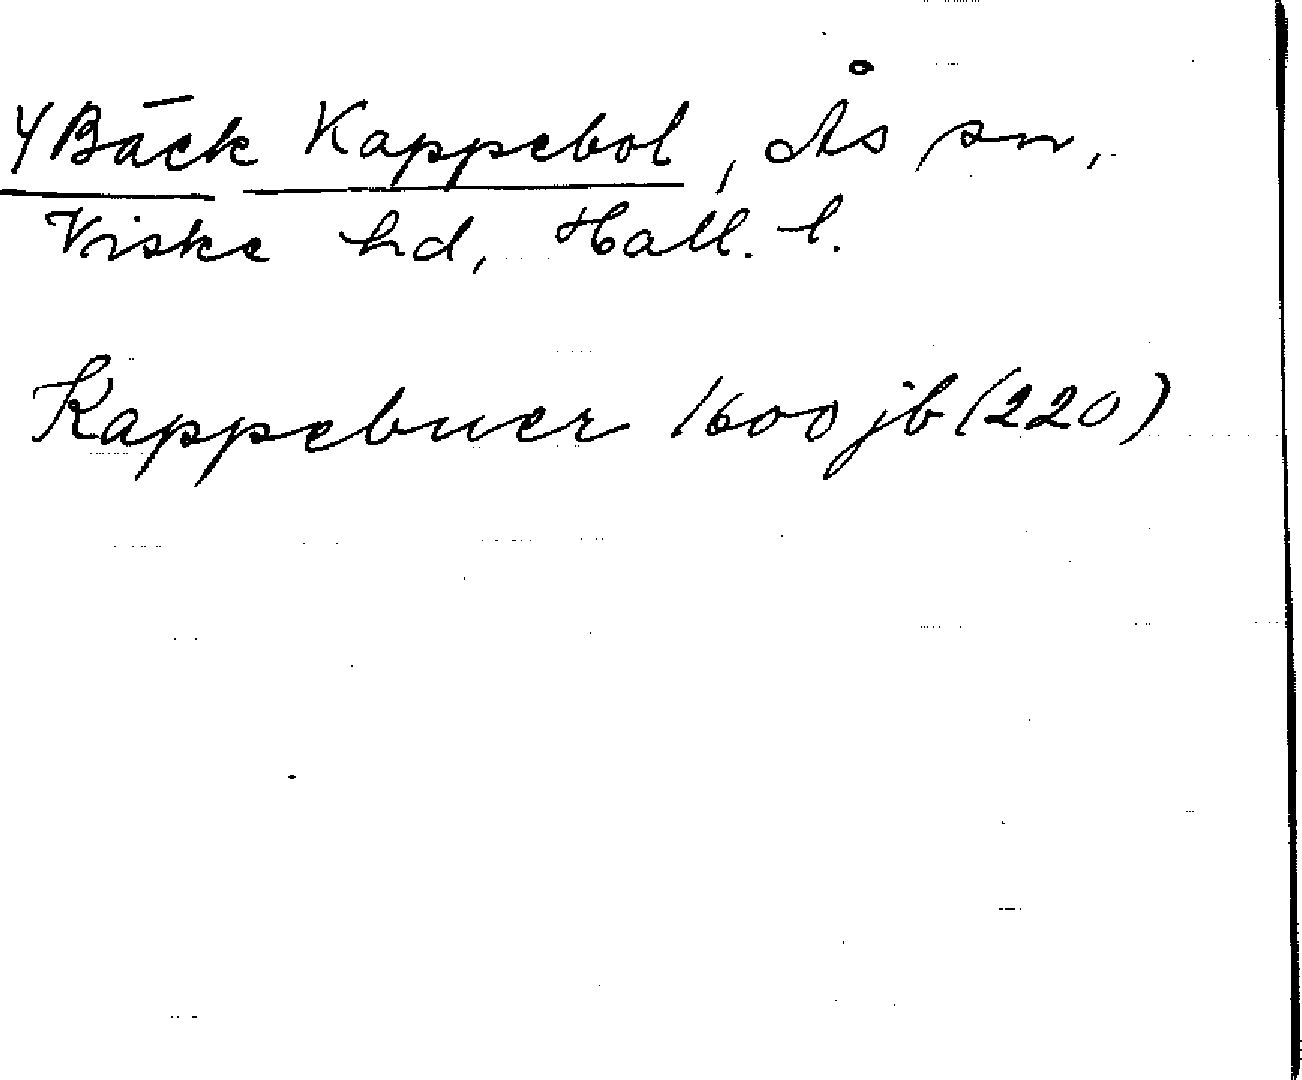 Y Bäck Kappebol, Ås sn,
Viske hd, Hall. l.
Kappebuer 1600 jb (220)